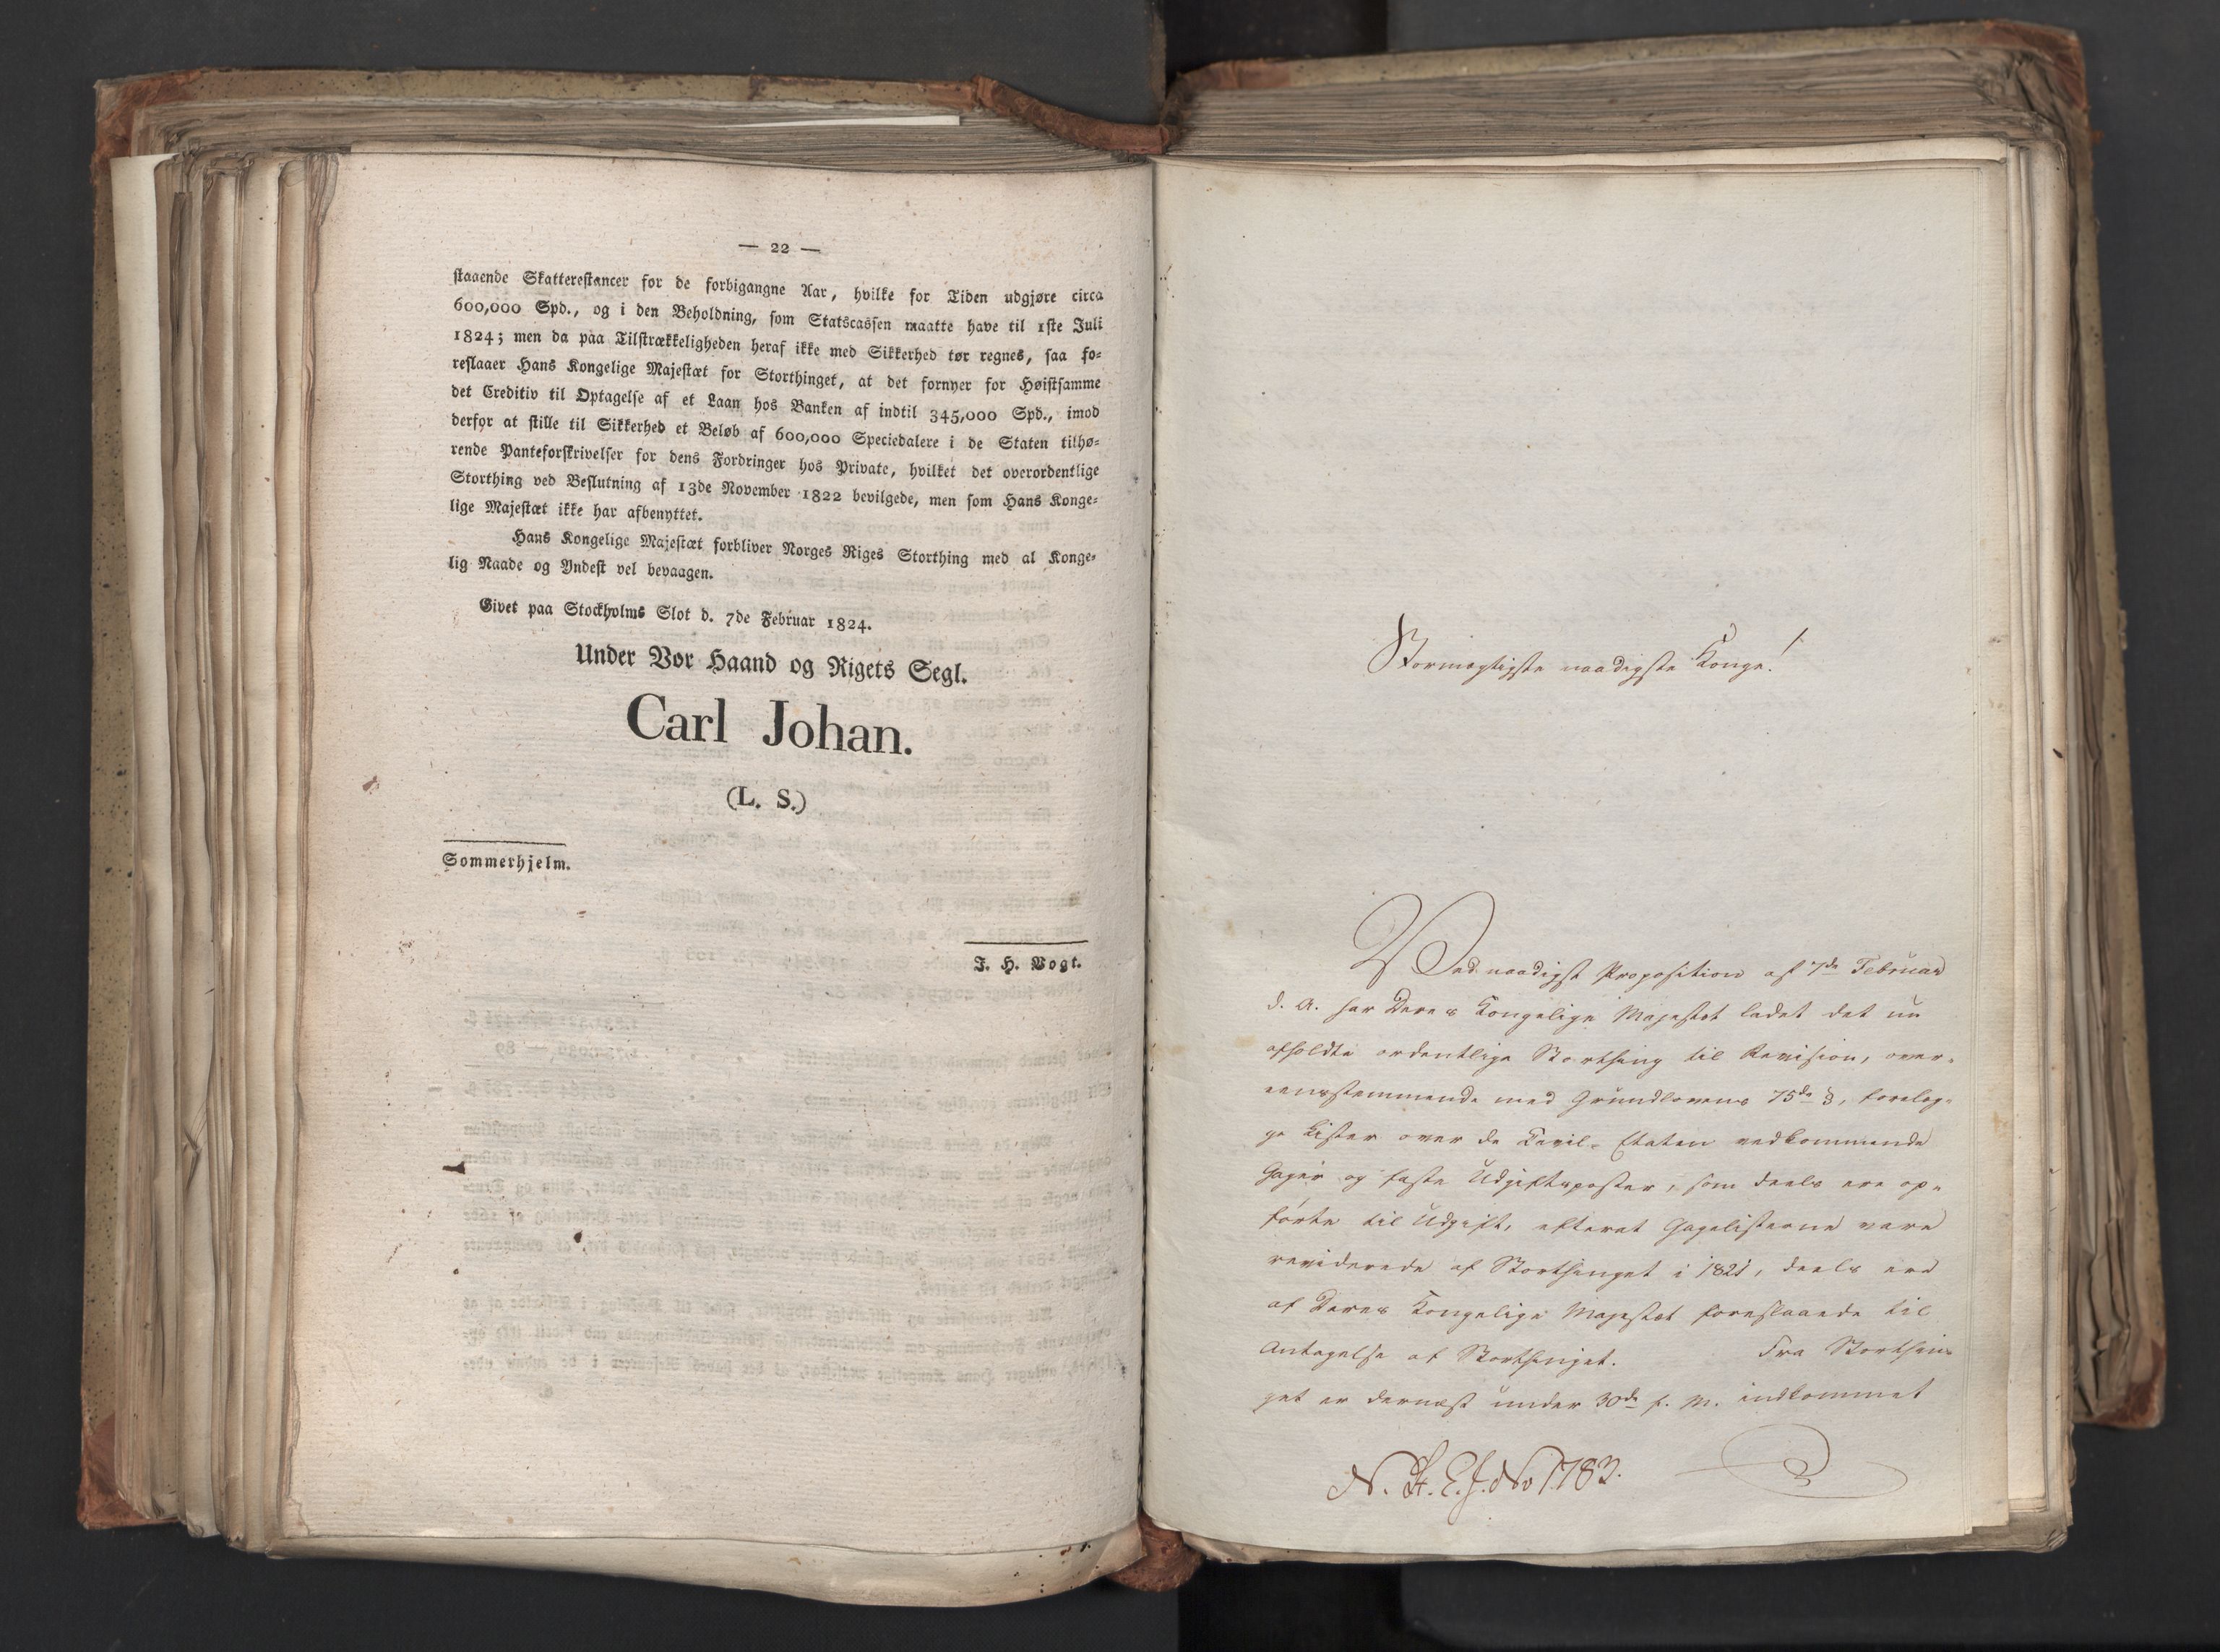 — 22 —
staaende Skatterestancer for de forbigangne Aar, hvilke for Tiden udgjøre circa
600,000 Spd., og i den Beholdning, som Statscassen maatte have til 1ste Juli
1824; men da paa Tilstrækkeligheden heraf ikke med Sikkerhed tør regnes, saa fo-
reslaaer Hans Kongelige Majestæt for Storthinget, at det fornyer for Høistsamme
det Creditiv til Optagelse af et Laan hos Banken af indtil 345,000 Spd., imod
derfor at stille til Sikkerhed et Beløb af 600,000 Speciedalere i de Staten tilhø-
rende Panteforskrivelser for dens Fordringer hos Private, hvilket det overordentlige
Storthing ved Beslutning af 13de November 1822 bevilgede, men som Hans Konge-
lige Majestæt ikke har afbenyttet.
Hans Kongelige Majestæt forbliver Norges Riges Storthing med al Konge-
lig Naade og Yndest vel bevaagen.
Givet paa Stockholms Slot d. 7de Februar 1824.
Under Vor Haand og Rigets Segl.
Carl Johan.
(L. S.)
Sommerhjelm.
J. H. Vogt.
Stormægtigste naadigste Konge!
Ved naadigst Proposition af 7de Februar
d. A. har Deres Kongelige Majestæt ladet det nu
afholdte ordentlige Storthing til Revision, over-
eensstemmende med Grundlovens 75de §, forelæg-
ge Lister over de Civil-Etaten vedkommende
Gager og faste Udgiftsposter, som deels ere op-
førte til Udgift, efterat Gagelisterne vare
reviderede af Storthinget i 1821, deels ere
af Deres Kongelige Majestæt foreslaaede til
Antagelse af Storthinget. Fra Storthin-
get er dernæst under 30de f. M. indkommet
N. St. E. J. No 1783.